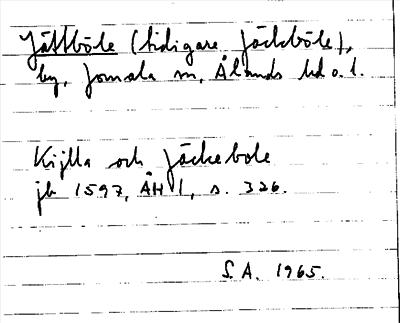 Jättböle (tidigare Jäckböle),
by, Jomala sn, Ålands hd o. l.
Kijlla och Jäckebole
jb 1597, ÅH 1, s. 326.
S.A. 1965.